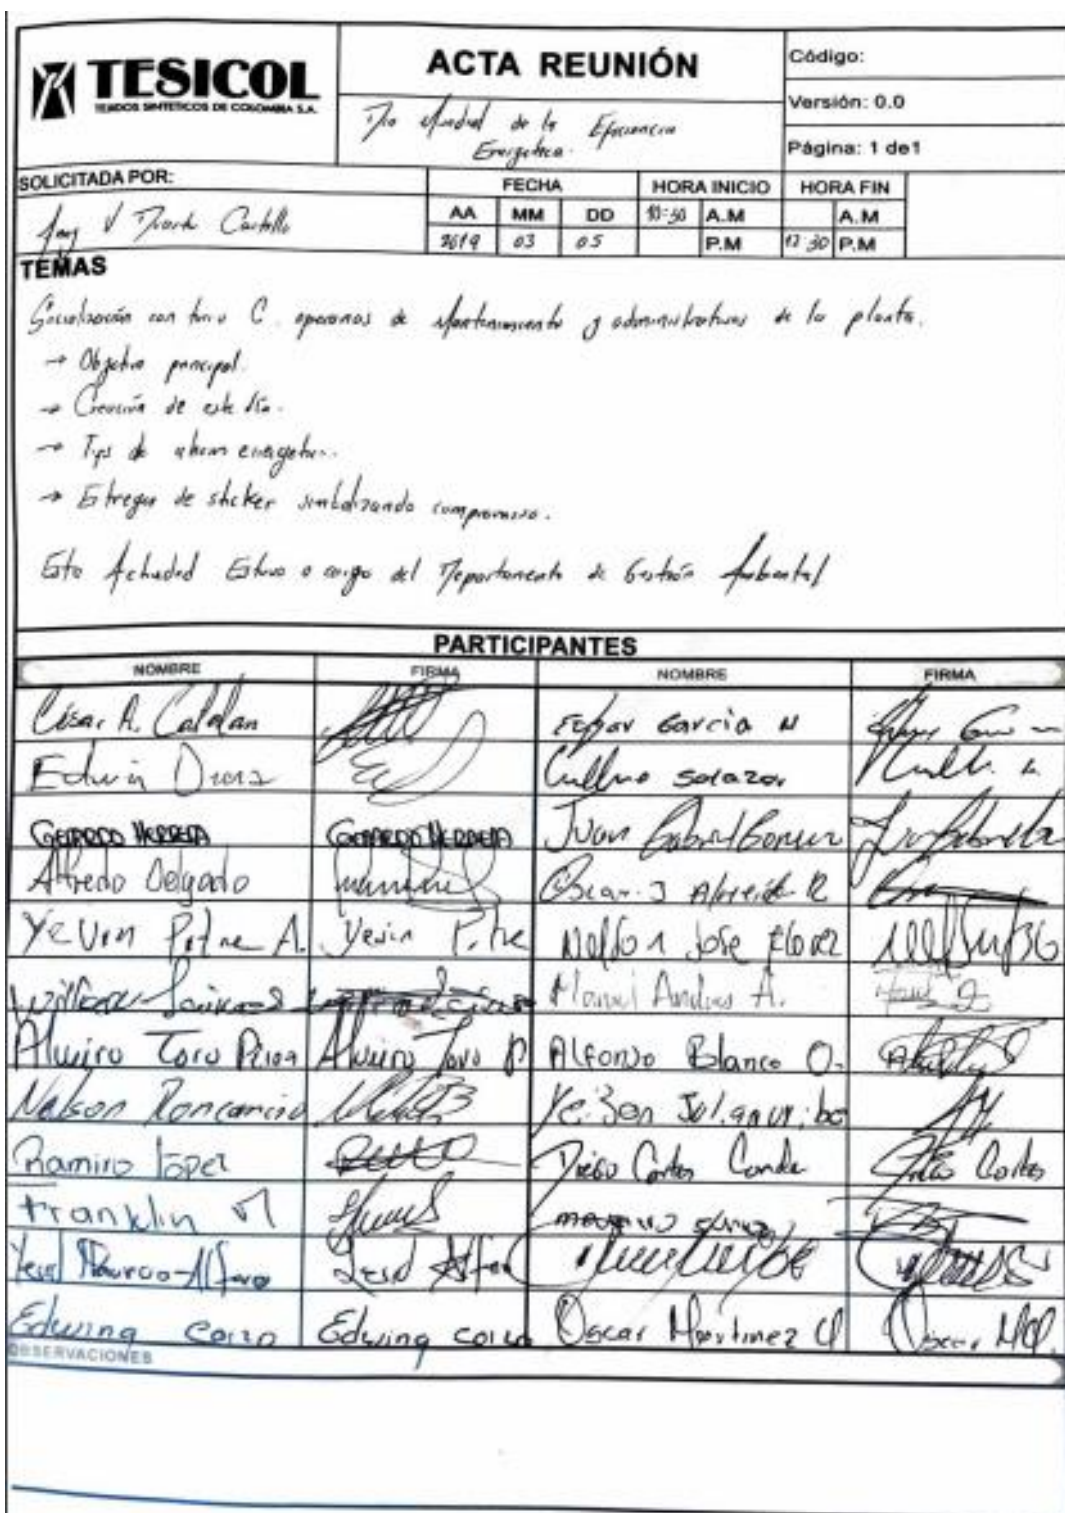 TESICOL
TEJIDOS SINTETICOS DE COLOMBIA S.A.
ACTA REUNIÓN
Día Mundial de la Eficiencia
Energetica.
Código:
Versión: 0.0
Página: 1 de1
SOLICITADA POR:
V Duarte Castillo
FECHA
AA MM DD
2019 03 05
HORA INICIO
10:30 A.M
P.M
HORA FIN
A.M
12:30 P.M
TEMAS
Socialización con turno C. operarios de Mantenimiento y administrativos de la planta.
→ Objetivo principal.
→ Creación de este día.
→ Tips de ahorro energetico.
→ Etregas de sticker simbolizando compromiso.
Esta Actividad Estuvo a cargo del Departamento de Gestión Ambiental
PARTICIPANTES
NOMBRE FIRMA NOMBRE FIRMA
César A. Edgar Garcia N
Edwin Salazar
GERARDO HERRERA GERARDO HERRERA Juan Gabriel Gomez
Alfredo Delgado Oscar J R
Yesin Pitre A. Yesin Pitre Nelson Jose Florez
Manuel Andres A.
Alveiro Toro Alveiro Toro P Alfonso Blanco O.
Nelson Roncancio Yeison Julian
Ramiro Lopez Diego Cortes Conde Diego Cortes
Franklin M
Yesid Mauricio Alfaro Yesid Alfaro
Edwing Corzo Edwing Corzo Oscar Martinez
OBSERVACIONES